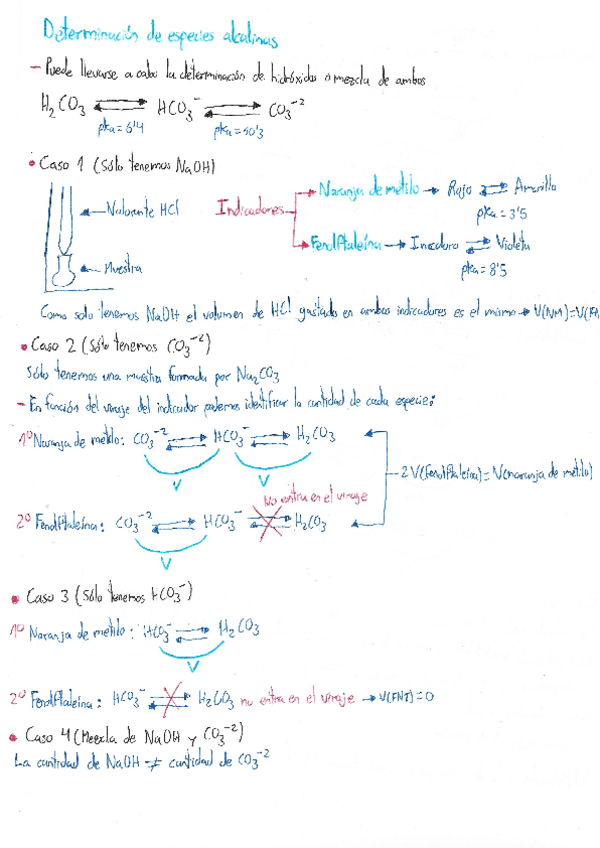 Determinación de especies alcalinas
- Puede llevarse a cabo la determinación de hidróxidos o mezcla de ambos
H2CO3 ⇌ HCO3⁻ ⇌ CO3⁻²
pka = 6'4 pka = 10'3
• Caso 1 (Sólo tenemos NaOH)
Valorante HCl
Muestra
Indicadores
Naranja de metilo → Rojo ⇌ Amarillo
pka = 3'5
Fenolftaleína → Incoloro ⇌ Violeta
pka = 8'5
Como solo tenemos NaOH el volumen de HCl gastado en ambos indicadores es el mismo → V(NM)=V(
• Caso 2 (Sólo tenemos CO3⁻²)
Sólo tenemos una muestra formada por Na2CO3
- En función del viraje del indicador podemos identificar la cantidad de cada especie:
1º Naranja de metilo: CO3⁻² ⇌ HCO3⁻ ⇌ H2CO3
V V
2V(Fenolftaleína) = V(naranja de metilo)
No entra en el viraje
2º Fenolftaleína: CO3⁻² ⇌ HCO3⁻ ⇌ H2CO3
V
• Caso 3 (Sólo tenemos HCO3⁻)
1º Naranja de metilo: HCO3⁻ ⇌ H2CO3
V
2º Fenolftaleína: HCO3⁻ ⇌ H2CO3 no entra en el viraje → V(FNT)=0
• Caso 4 (Mezcla de NaOH y CO3⁻²)
La cantidad de NaOH ≠ cantidad de CO3⁻²